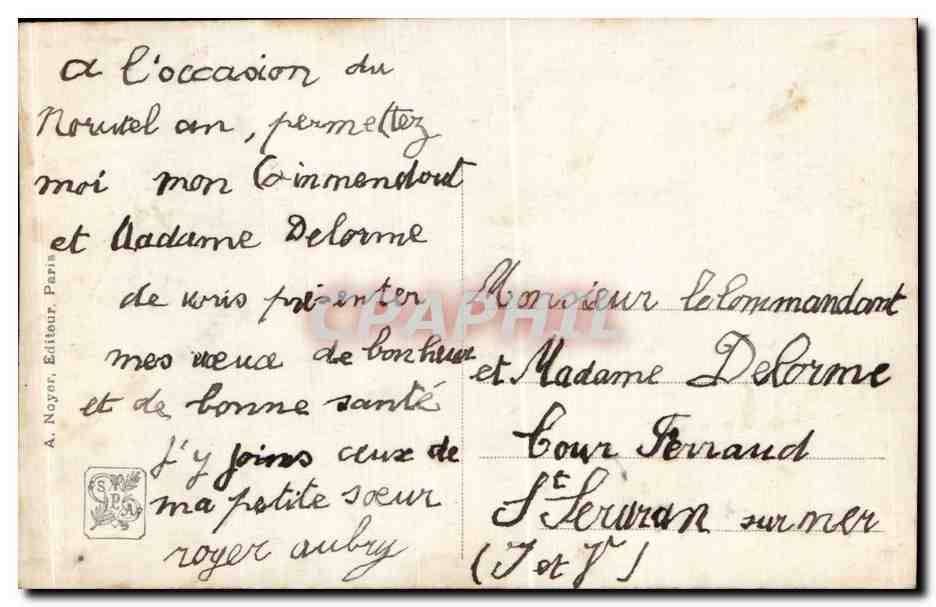 a l'occasion du
Nouvel an, permettez
moi mon Commendant
et Madame Delorme
de vous présenter
mes vœux de bonheur
et de bonne santé
j'y joins ceux de
ma petite sœur
royer aubry
Monsieur le Commandant
et Madame Delorme
Tour Ferraud
St Servan sur mer
(I et V)
A. Noyer, Editeur, Paris
SPA
CPAPHIL